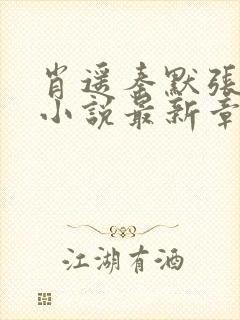 肖遥秦默張
小說最新章
江湖有酒